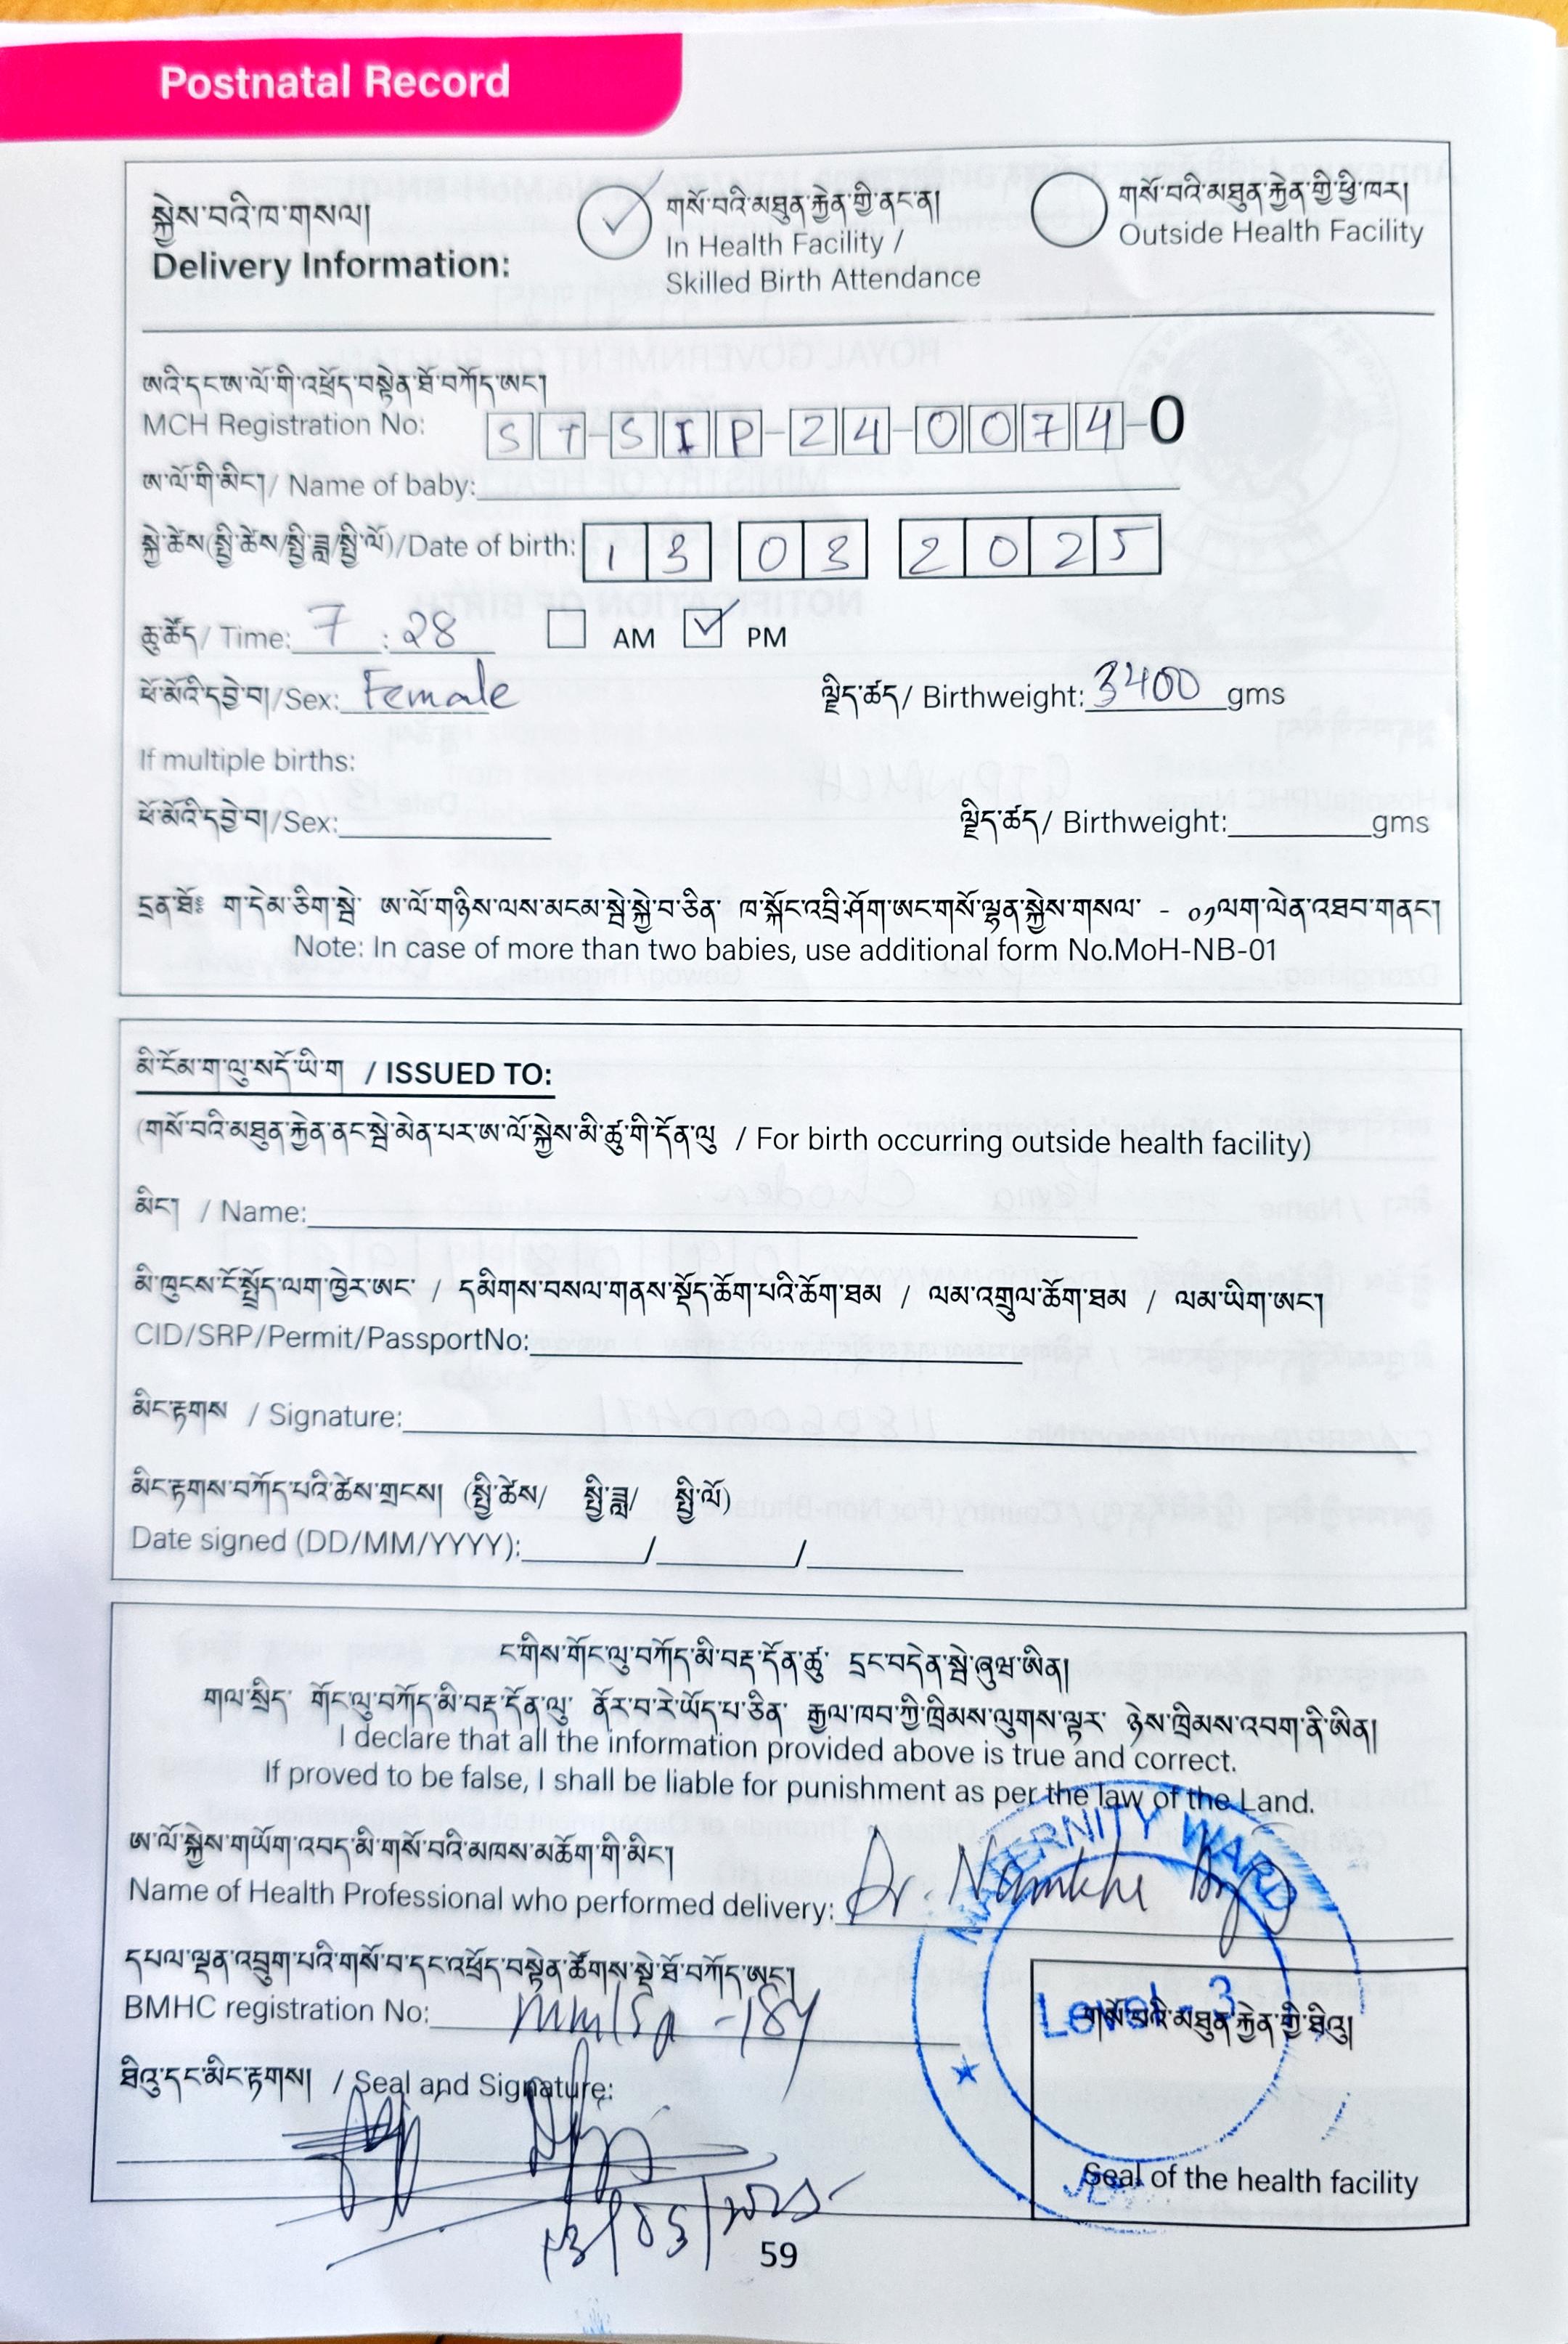 Postnatal Record
སྐྱེས་བའི་ཁ་གསལ།
Delivery Information:
གསོ་བའི་མཐུན་རྐྱེན་གྱི་ནང་ན།
In Health Facility /
Skilled Birth Attendance
གསོ་བའི་མཐུན་རྐྱེན་གྱི་ཕྱི་ཁར།
Outside Health Facility
ཨའི་དང་ཨ་ལོ་གི་འཕྲོད་བསྟེན་ཐོ་བཀོད་ཨང་།
MCH Registration No: ST-SIP-24-0074-0
ཨ་ལོ་གི་མིང་། / Name of baby:
སྐྱེ་ཚེས(སྤྱི་ཚེས/སྤྱི་ཟླ/སྤྱི་ལོ)/Date of birth: 13 03 2025
ཆུ་ཚོད/ Time: 7:28 AM PM
ཕོ་མོའི་དབྱེ་བ། /Sex: Female ལྗིད་ཚད/ Birthweight: 3400 gms
If multiple births:
ཕོ་མོའི་དབྱེ་བ། /Sex: ལྗིད་ཚད/ Birthweight: gms
དྲན་ཐོ༔ ག་དེམ་ཅིག་སྦེ་ ཨ་ལོ་གཉིས་ལས་མངམ་སྦེ་སྐྱེ་བ་ཅིན་ ཁ་སྐོང་འབྲི་ཤོག་ཨང་གསོ་ལྷན་སྐྱེས་གསལ་ - ༠༡ལག་ལེན་འཐབ་གནང་།
Note: In case of more than two babies, use additional form No.MoH-NB-01
མི་ངོམ་ག་ལུ་སདོ་ཡི་ག / ISSUED TO:
(གསོ་བའི་མཐུན་རྐྱེན་ནང་སྦེ་མེན་པར་ཨ་ལོ་སྐྱེས་མི་ཚུ་གི་དོན་ལུ / For birth occurring outside health facility)
མིང་། / Name:
མི་ཁུངས་ངོ་སྤྲོད་ལག་ཁྱེར་ཨང་ / དམིགས་བསལ་གནས་སྡོད་ཆོག་པའི་ཆོག་ཐམ / ལམ་འགྲུལ་ཆོག་ཐམ / ལམ་ཡིག་ཨང་།
CID/SRP/Permit/PassportNo:
མིང་རྟགས / Signature:
མིང་རྟགས་བཀོད་པའི་ཚེས་གྲངས། (སྤྱི་ཚེས/ སྤྱི་ཟླ/ སྤྱི་ལོ)
Date signed (DD/MM/YYYY): / /
ང་གིས་གོང་ལུ་བཀོད་མི་བརྡ་དོན་ཚུ་ དྲང་བདེན་སྦེ་ཞུཝ་ཨིན།
གལ་སྲིད་ གོང་ལུ་བཀོད་མི་བརྡ་དོན་ལུ་ ནོར་བ་རེ་ཡོད་པ་ཅིན་ རྒྱལ་ཁབ་ཀྱི་ཁྲིམས་ལུགས་ལྟར་ ཉེས་ཁྲིམས་འབག་ནི་ཨིན།
I declare that all the information provided above is true and correct.
If proved to be false, I shall be liable for punishment as per the law of the Land.
ཨ་ལོ་སྐྱེས་གཡོག་འབད་མི་གསོ་བའི་མཁས་མཆོག་གི་མིང་།
Name of Health Professional who performed delivery: Dr.
MATERNITY WARD
དཔལ་ལྡན་འབྲུག་པའི་གསོ་བ་དང་འཕྲོད་བསྟེན་ཚོགས་སྡེ་ཐོ་བཀོད་ཨང་།
BMHC registration No:
Level - 3
གསོ་བའི་མཐུན་རྐྱེན་གྱི་ཐིའུ།
ཐིའུ་དང་མིང་རྟགས། / Seal and Signature:
Seal of the health facility
13/03/2025
59